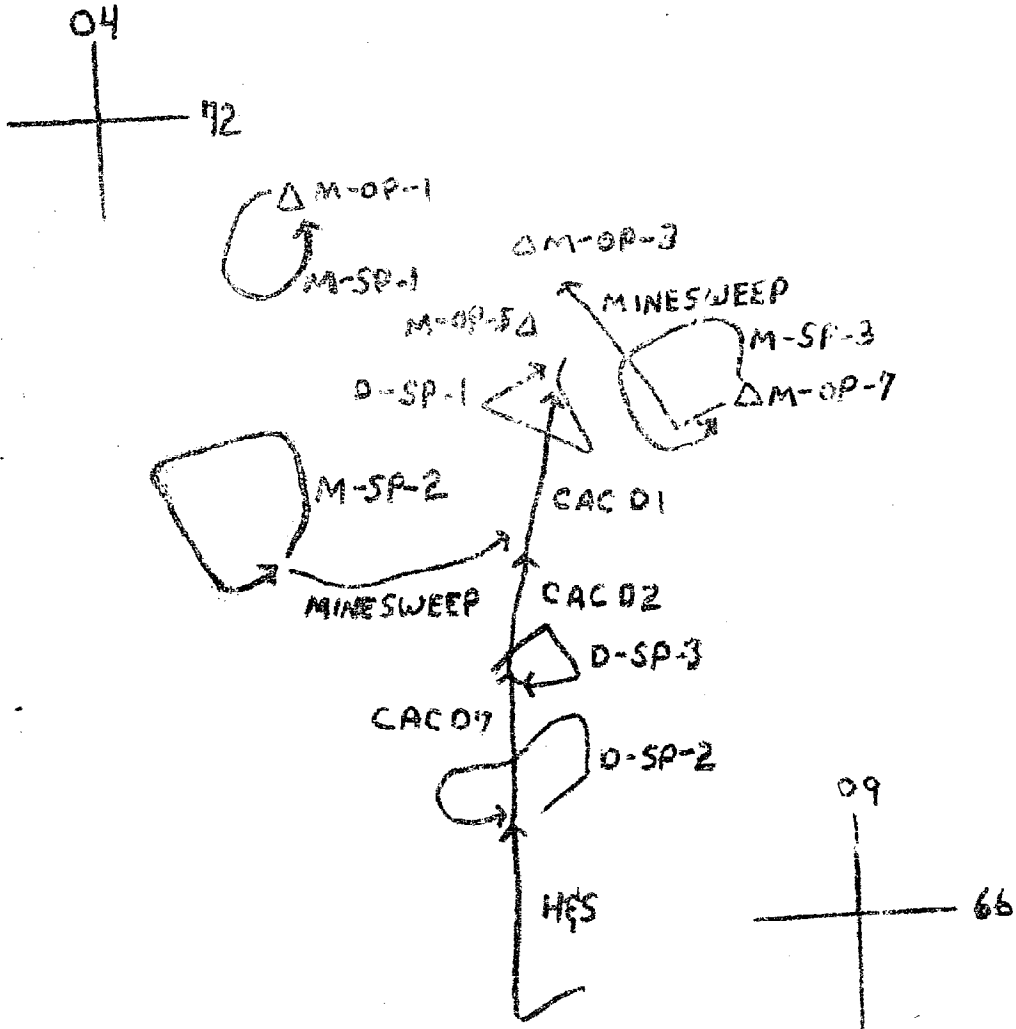 04
72
M-OP-1
M-OP-3
M-SP-1
MINESWEEP
M-OP-5
M-SP-3
D-SP-1
M-OP-7
M-SP-2
CAC D1
CAC D2
MINESWEEP
D-SP-3
CAC D7
D-SP-2
09
H&S
66